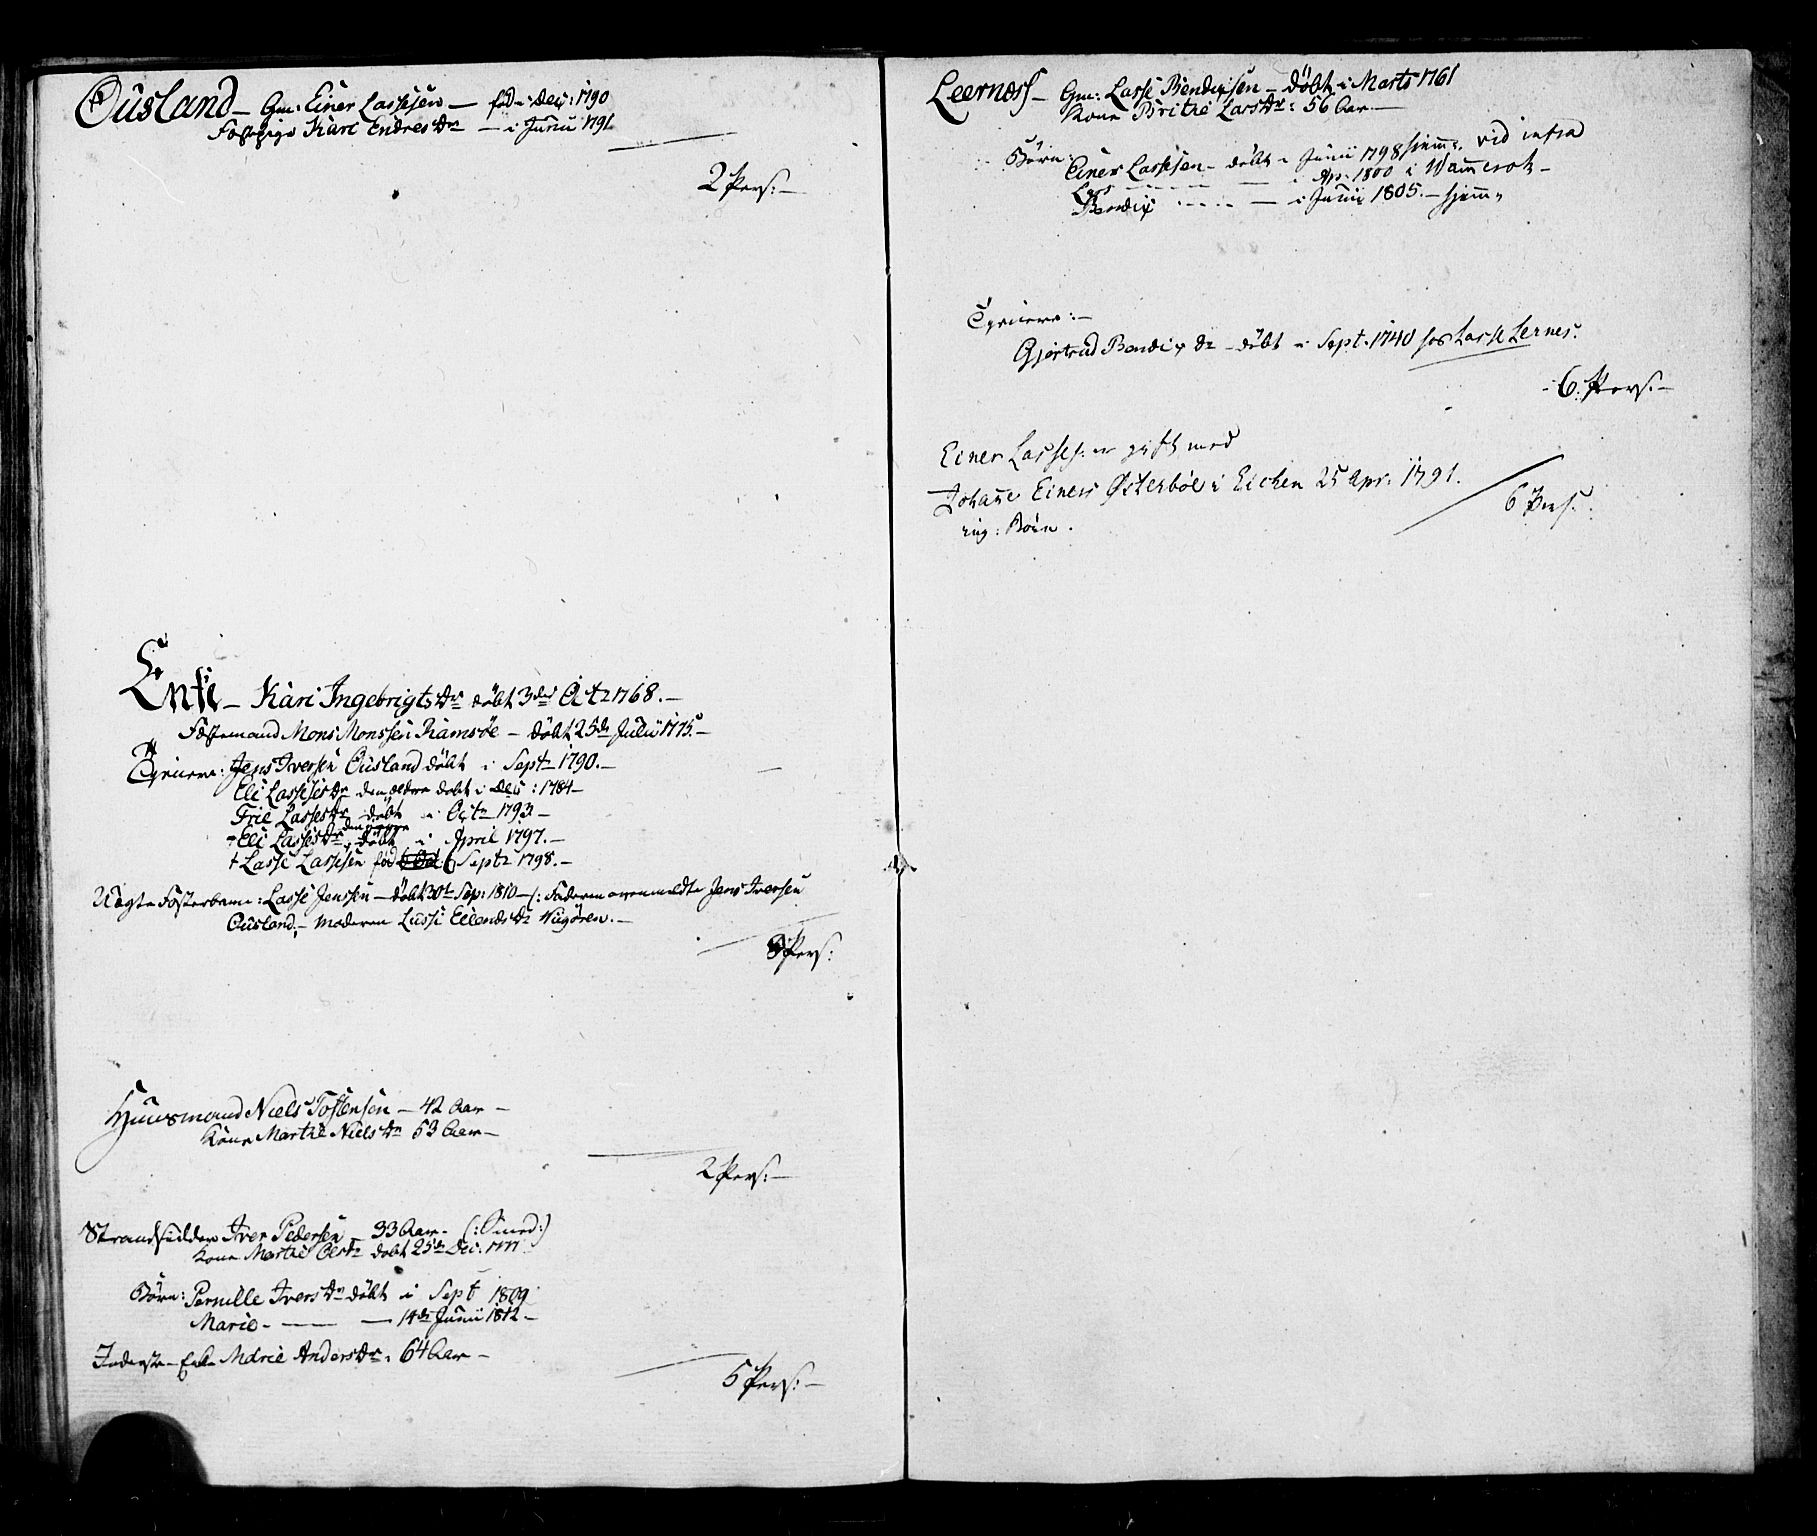 Ousland – Gm: Einer Lassesen — fød i Dec: 1790
Fæstepige Kari Endresdr — i Junii 1791.
2 Pers: —
Enke – Kari Ingebrigtsdr døbt 3de Oct 1768. —
Fæstemand Mons Monssen Ramsøe — døbt 25de Julii 1775. —
Tyenere: Jens Iversen Ousland døbt i Septr 1790. —
Eli Lassesdr den ældre døbt i Dec: 1784 —
Frie Lassesdr døbt i Octr 1793 —
Eli Lassesdr den yngre døbt i April 1797. —
† Lasse Lassesen fød Septr 1798. —
Uægte Fosterbarn: Lasse Jenssen — døbt 30te Sep: 1810 — (: Faderen ovenmeldte Jens Iversen
Ousland, — Moderen Lussi Ellendsdr Vigøren. —
8 Pers:
Huusmand Niels Tostensen — 42 Aar —
Kone Marthe Nielsdr 53 Aar —
2 Pers: —
Strandsidder Iver Pedersen — 33 Aar — (: Smed :)
Kone Marthe Olsdr døbt 25de Dec: 1777
Børn: Pernille Iversdr døbt i Sept 1809
Marie — — 14de Junii 1812 —
Inderste – Enke Marie Andersdr: 64 Aar —
5 Pers: —
Leernæss – Gm: Lasse Bendixsen — døbt i Marts 1761
Kone Brithe Larsdr: 56 Aar —
Børn: Einer Lassesen — døbt i Junii 1798 hjemme, vid infra
Lars — — i Apr. 1800 i
Bendix — — i Junii 1805. — hjemm,
Tyenere: —
Gjertrud Bendixdr — døbt i Sept. 1740 hos Lasse Lernes.
6. Pers: —
Einer Lasses: er gift med
Johanne Einers Østerbøe i Eichen 25 Apr. 1791.
ing: Børn.
6 Pers: